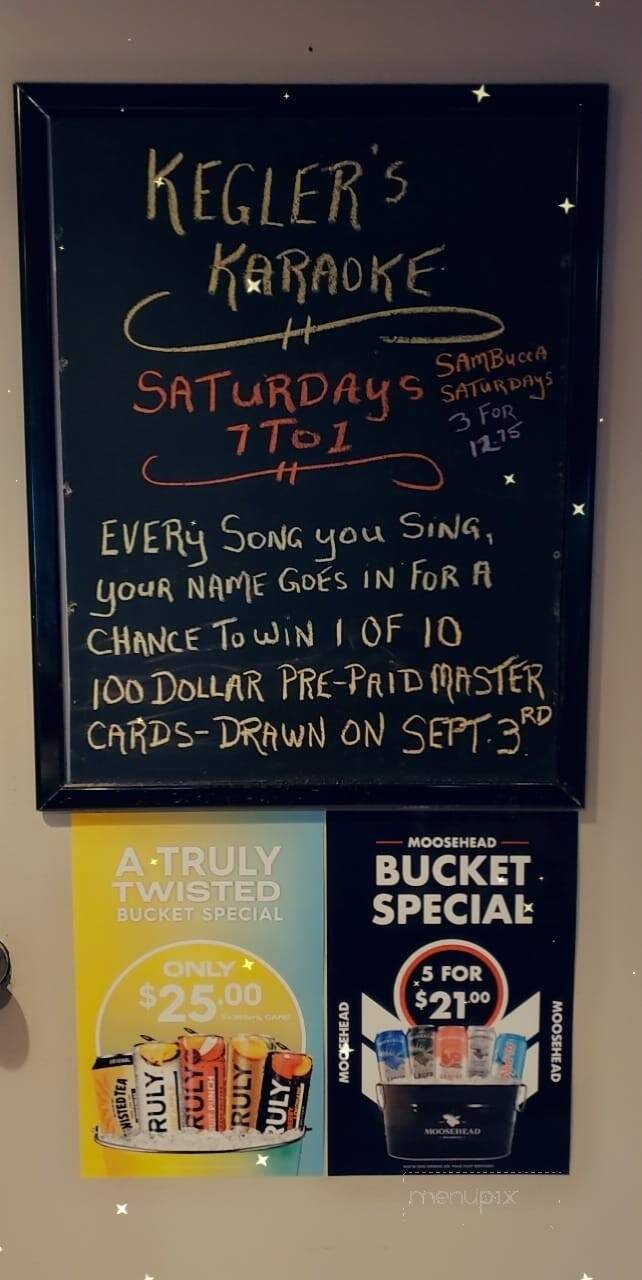 KEGLER'S
KARAOKE
SATURDAYS
7 TO 1
SAMBUCCA
SATURDAYS
3 FOR
12.75
EVERY SONG YOU SING,
YOUR NAME GOES IN FOR A
CHANCE TO WIN 1 OF 10
100 DOLLAR PRE-PAID MASTER
CARDS-DRAWN ON SEPT. 3RD
A TRULY
TWISTED
BUCKET SPECIAL
ONLY
$25.00
TWISTED TEA
TRULY
TRULY
TRULY
TRULY
MOOSEHEAD
BUCKET
SPECIAL
5 FOR
$21.00
MOOSEHEAD
MOOSEHEAD
LAGER
MOOSEHEAD
menupix